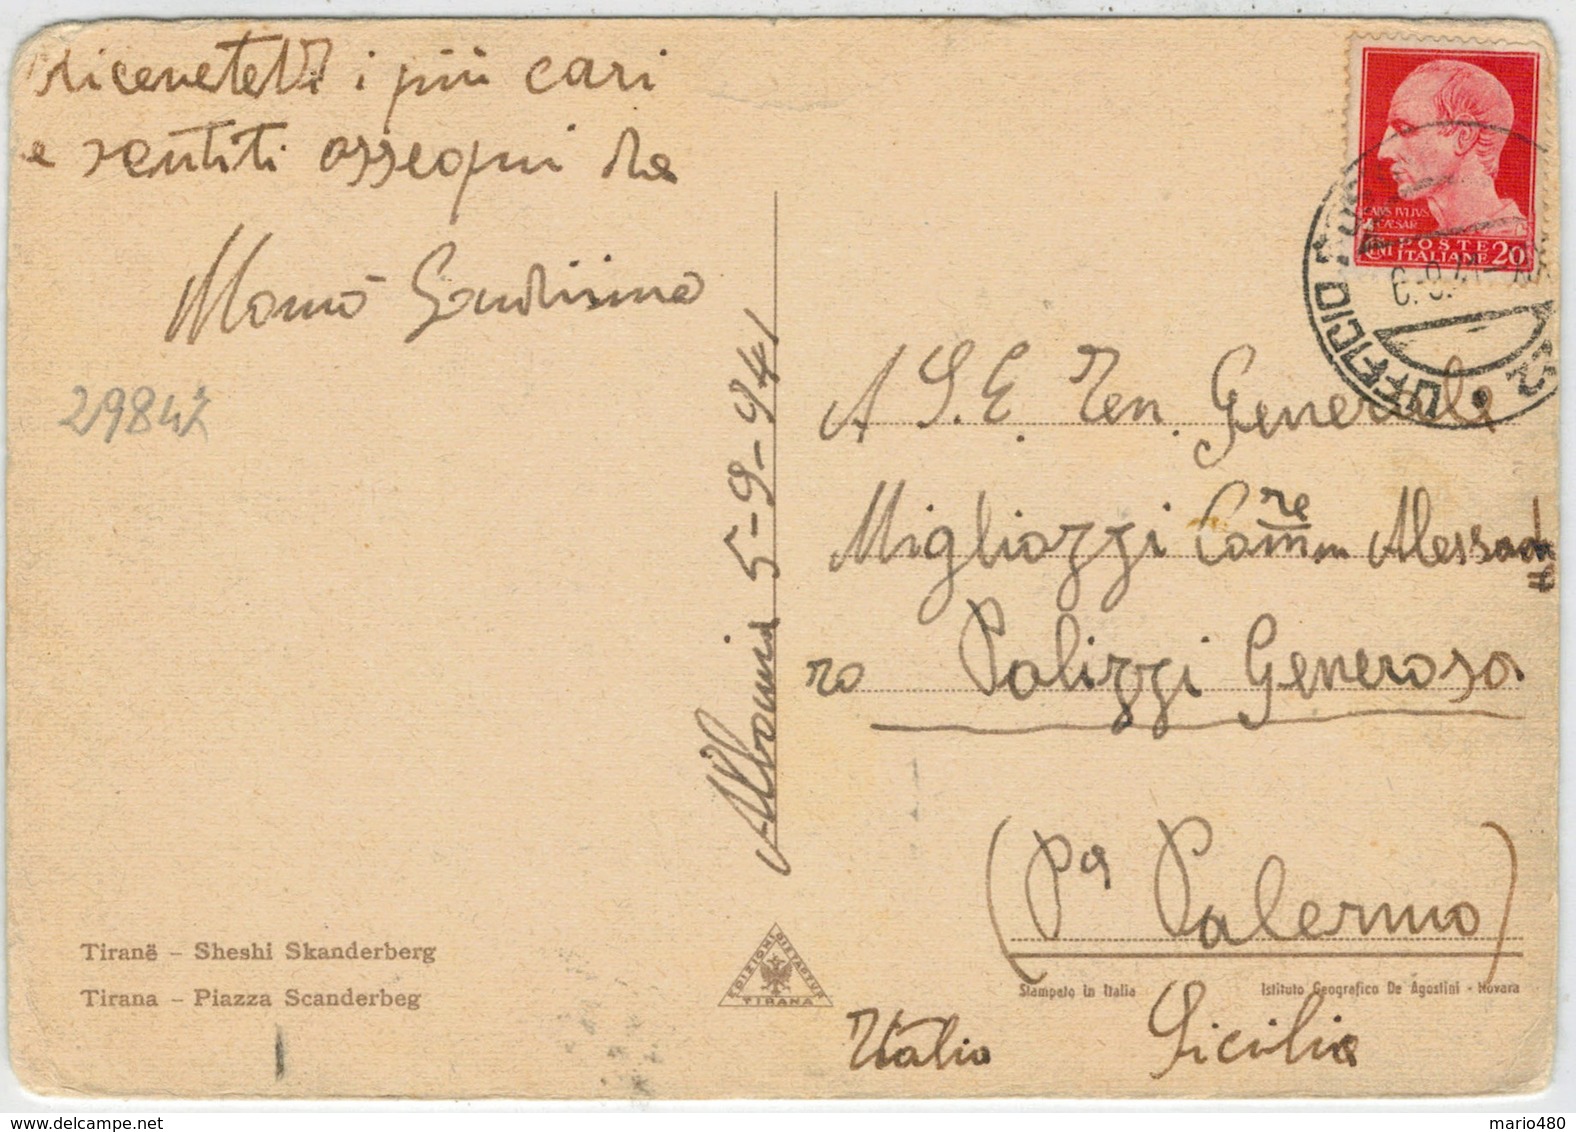 ricevetevi i più cari
e sentiti ossequi da
29847
Albania 5-9-941
A S.E. Ten. Generale
Migliozzi Comm.re Alessand
ro Palizzi Generosa
(Pa Palermo)
Italia Sicilia
CAIVS IVLIVS
CÆSAR
POSTE
ITALIANE
CENT 20
UFFICIO POSTA
6.9.41
22
Tiranë - Sheshi Skanderberg
Tirana - Piazza Scanderbeg
EDIZIONI DISTAPTUR
TIRANA
Stampato in Italia
Istituto Geografico De Agostini - Novara
mario480